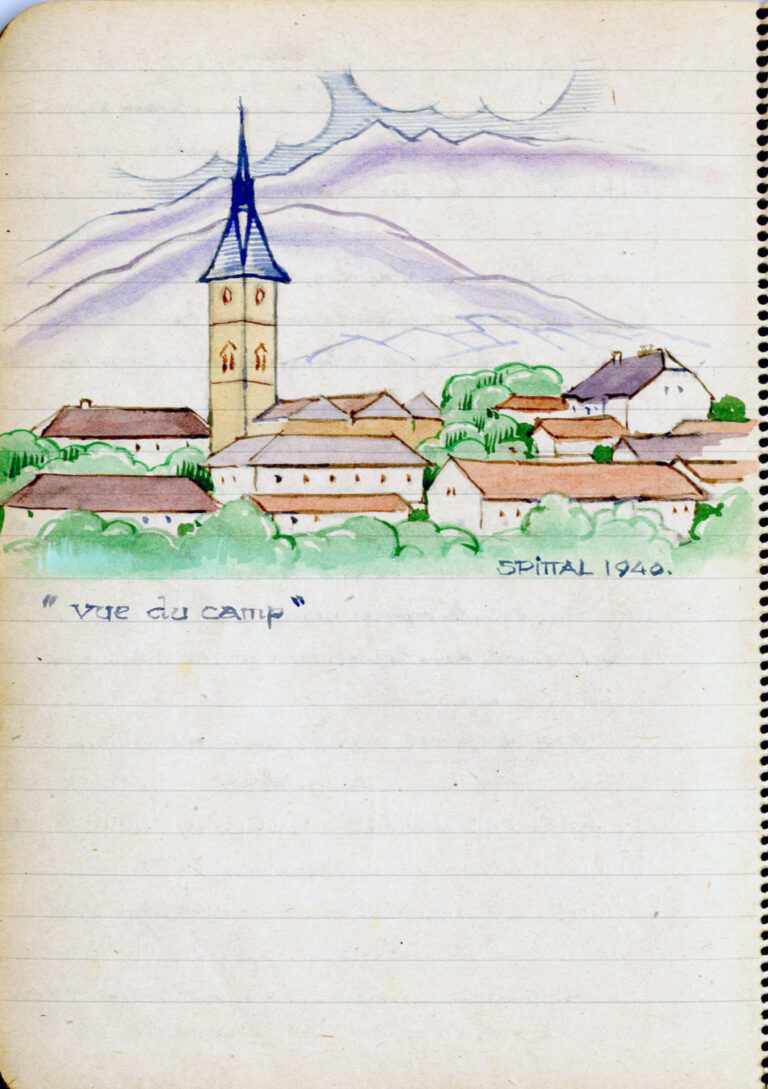 SPITTAL 1940.
"vue du camp"